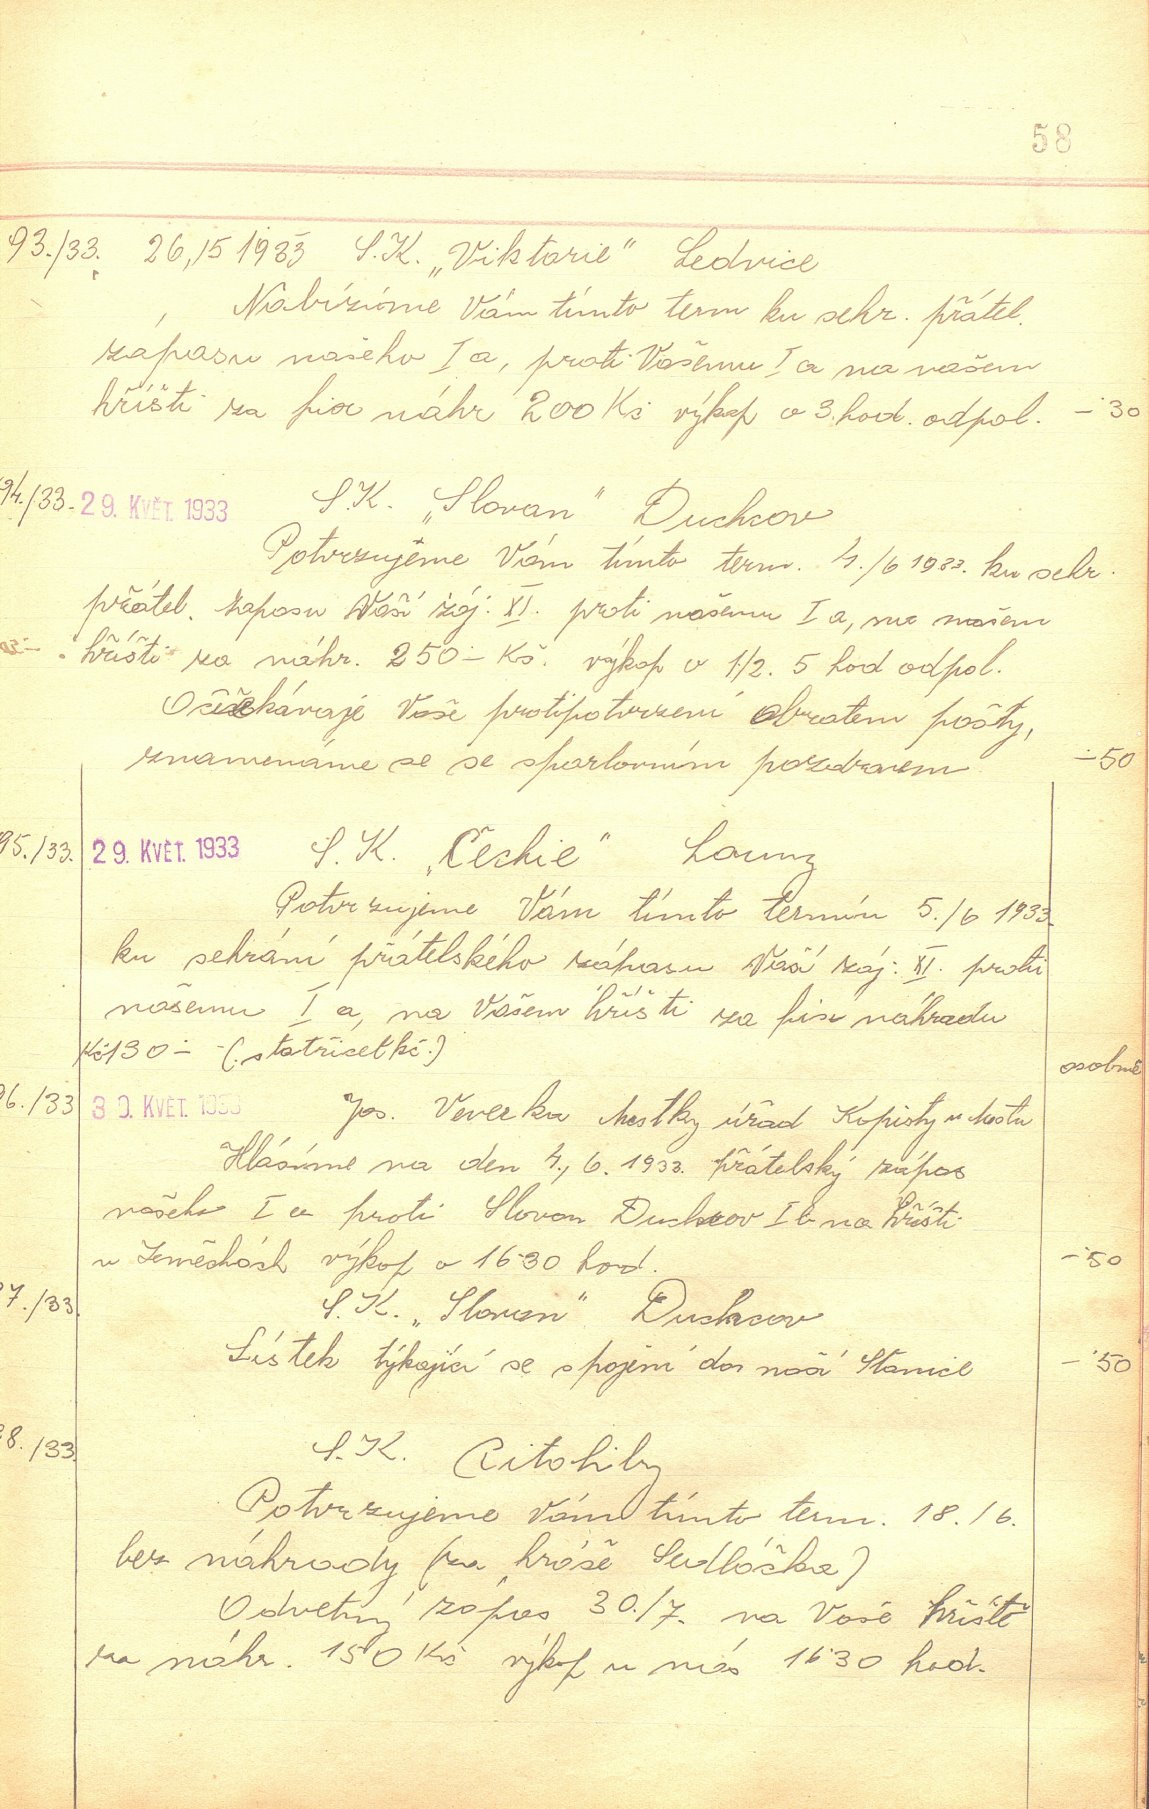 58
93./33. 26,/5 1933 S.K. „Viktorie" Ledvice
Nabízíme Vám tímto term ku sehr. přátel.
zápasu našeho I a, proti Vašemu I a na našem
hřišti za fix náhr 200 Kč výkop o 3. hod. odpol. -·30
94./33. 29. KVĚT. 1933 S.K. „Slovan" Duchcov
Potvrzujeme Vám tímto term. 4./6 1933. ku sehr.
přátel. zapasu Vaší záj. XI. proti našemu I a, na našem
hřišti za náhr. 250- Kč. výkop o 1/2. 5 hod odpol.
Očekávaje Vaše protipotvrzení obratem pošty,
znamenáme se se sportovním pozdravem -·50
95./33. 29. KVĚT. 1933 S.K. „Čechie" Louny
Potvrzujeme Vám tímto termín 5./6 1933.
ku sehrání přátelského zápasu Vaší záj. XI. proti
našemu I a, na Vašem hřišti za fix náhradu
Kč 130- (.stotřicet kč.) osobně
96./33 30. KVĚT. 1933 Jos. Veverka Mestky úřad Kopisty u Mostu
Hlásíme na den 4., 6. 1933. přátelský zápas
našeho I a proti Slovan Duchcov I b na hřišti
v Zeměchách výkop o 16·30 hod. -·50
97./33. S.K. „Slovan" Duchcov
Lístek týkající se spojení do naší Stanice -·50
98./33. S.K.
Potvrzujeme Vám tímto term. 18./6.
bez náhrady (za hráče Sedláčka)
Odvetný zápas 30./7. na Vaše hřiště
za náhr. 150 Kč výkop u nás 16·30 hod.